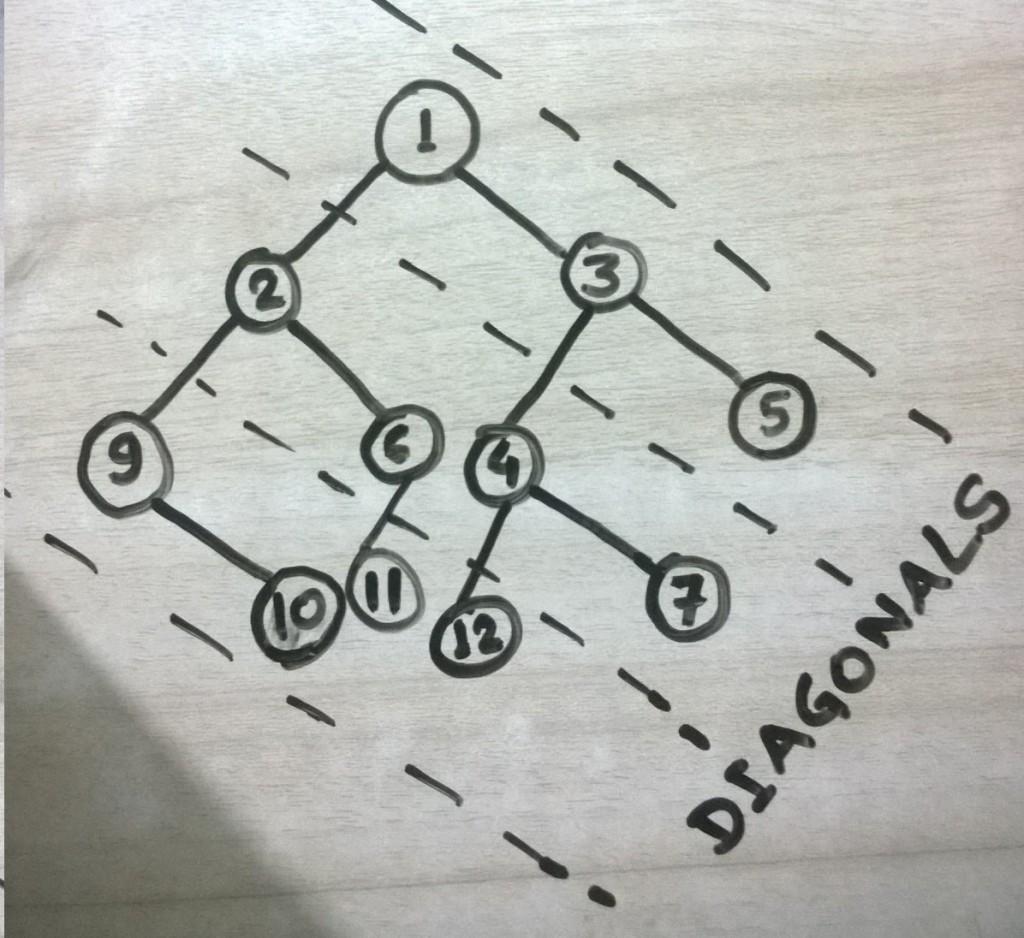 1
2
3
9
6
4
5
10
11
12
7
DIAGONALS